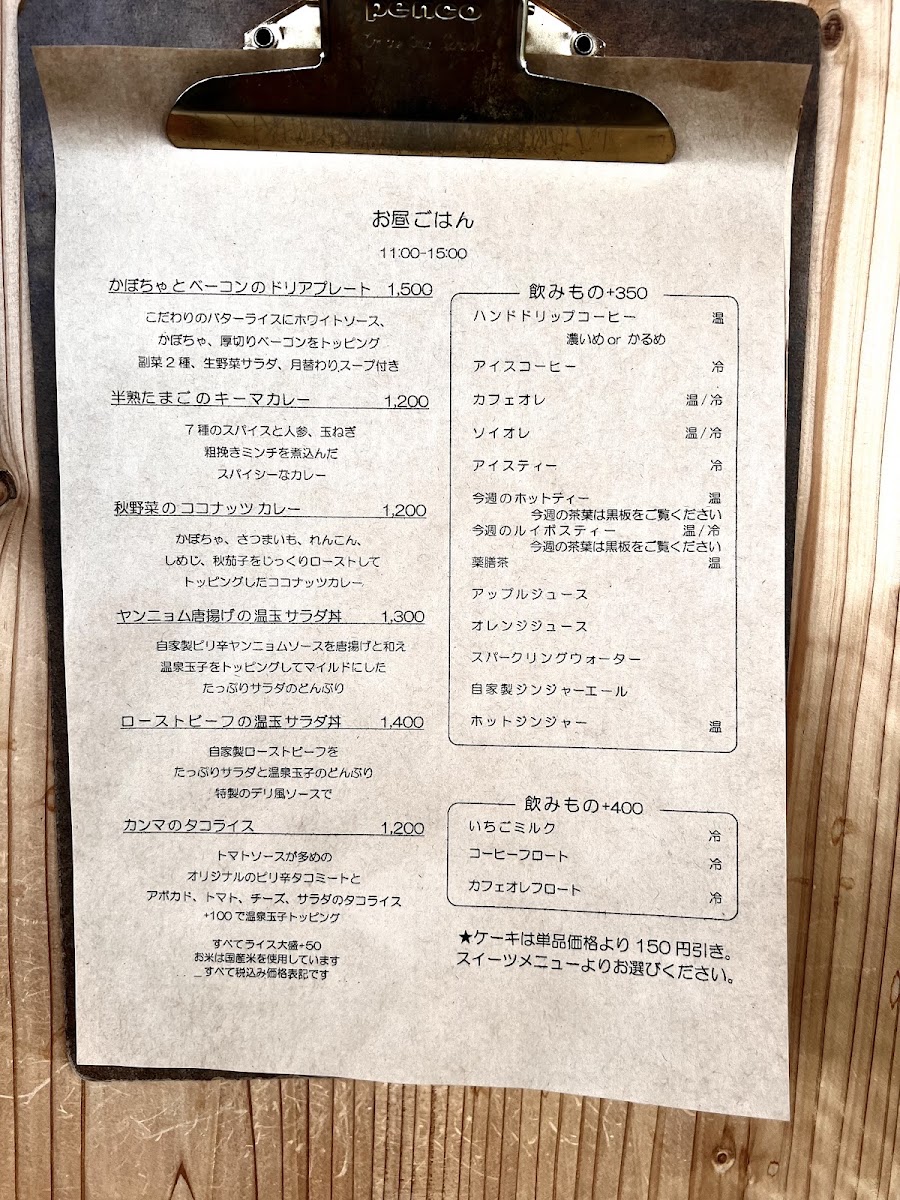 penco
お昼ごはん
11:00-15:00
かぼちゃとベーコンのドリアプレート 1,500
こだわりのバターライスにホワイトソース、
かぼちゃ、厚切りベーコンをトッピング
副菜2種、生野菜サラダ、月替わりスープ付き
半熟たまごのキーマカレー 1,200
7種のスパイスと人参、玉ねぎ
粗挽きミンチを煮込んだ
スパイシーなカレー
秋野菜のココナッツカレー 1,200
かぼちゃ、さつまいも、れんこん、
しめじ、秋茄子をじっくりローストして
トッピングしたココナッツカレー
ヤンニョム唐揚げの温玉サラダ丼 1,300
自家製ピリ辛ヤンニョムソースを唐揚げと和え
温泉玉子をトッピングしてマイルドにした
たっぷりサラダのどんぶり
ローストビーフの温玉サラダ丼 1,400
自家製ローストビーフを
たっぷりサラダと温泉玉子のどんぶり
特製のデリ風ソースで
カンマのタコライス 1,200
トマトソースが多めの
オリジナルのピリ辛タコミートと
アボカド、トマト、チーズ、サラダのタコライス
+100で温泉玉子トッピング
すべてライス大盛+50
お米は国産米を使用しています
すべて税込み価格表記です
飲みもの+350
ハンドドリップコーヒー 温
濃いめ or かるめ
アイスコーヒー 冷
カフェオレ 温/冷
ソイオレ 温/冷
アイスティー 冷
今週のホットティー 温
今週の茶葉は黒板をご覧ください
今週のルイボスティー 温/冷
今週の茶葉は黒板をご覧ください
薬膳茶 温
アップルジュース
オレンジジュース
スパークリングウォーター
自家製ジンジャーエール
ホットジンジャー 温
飲みもの+400
いちごミルク 冷
コーヒーフロート 冷
カフェオレフロート 冷
★ケーキは単品価格より150円引き。
スイーツメニューよりお選びください。